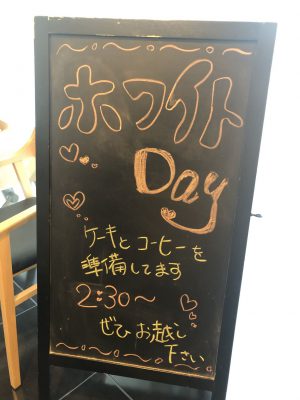 ホワイト
Day
ケーキと コーヒーを
準備してます
2:30〜
ぜひ お越し
下さい